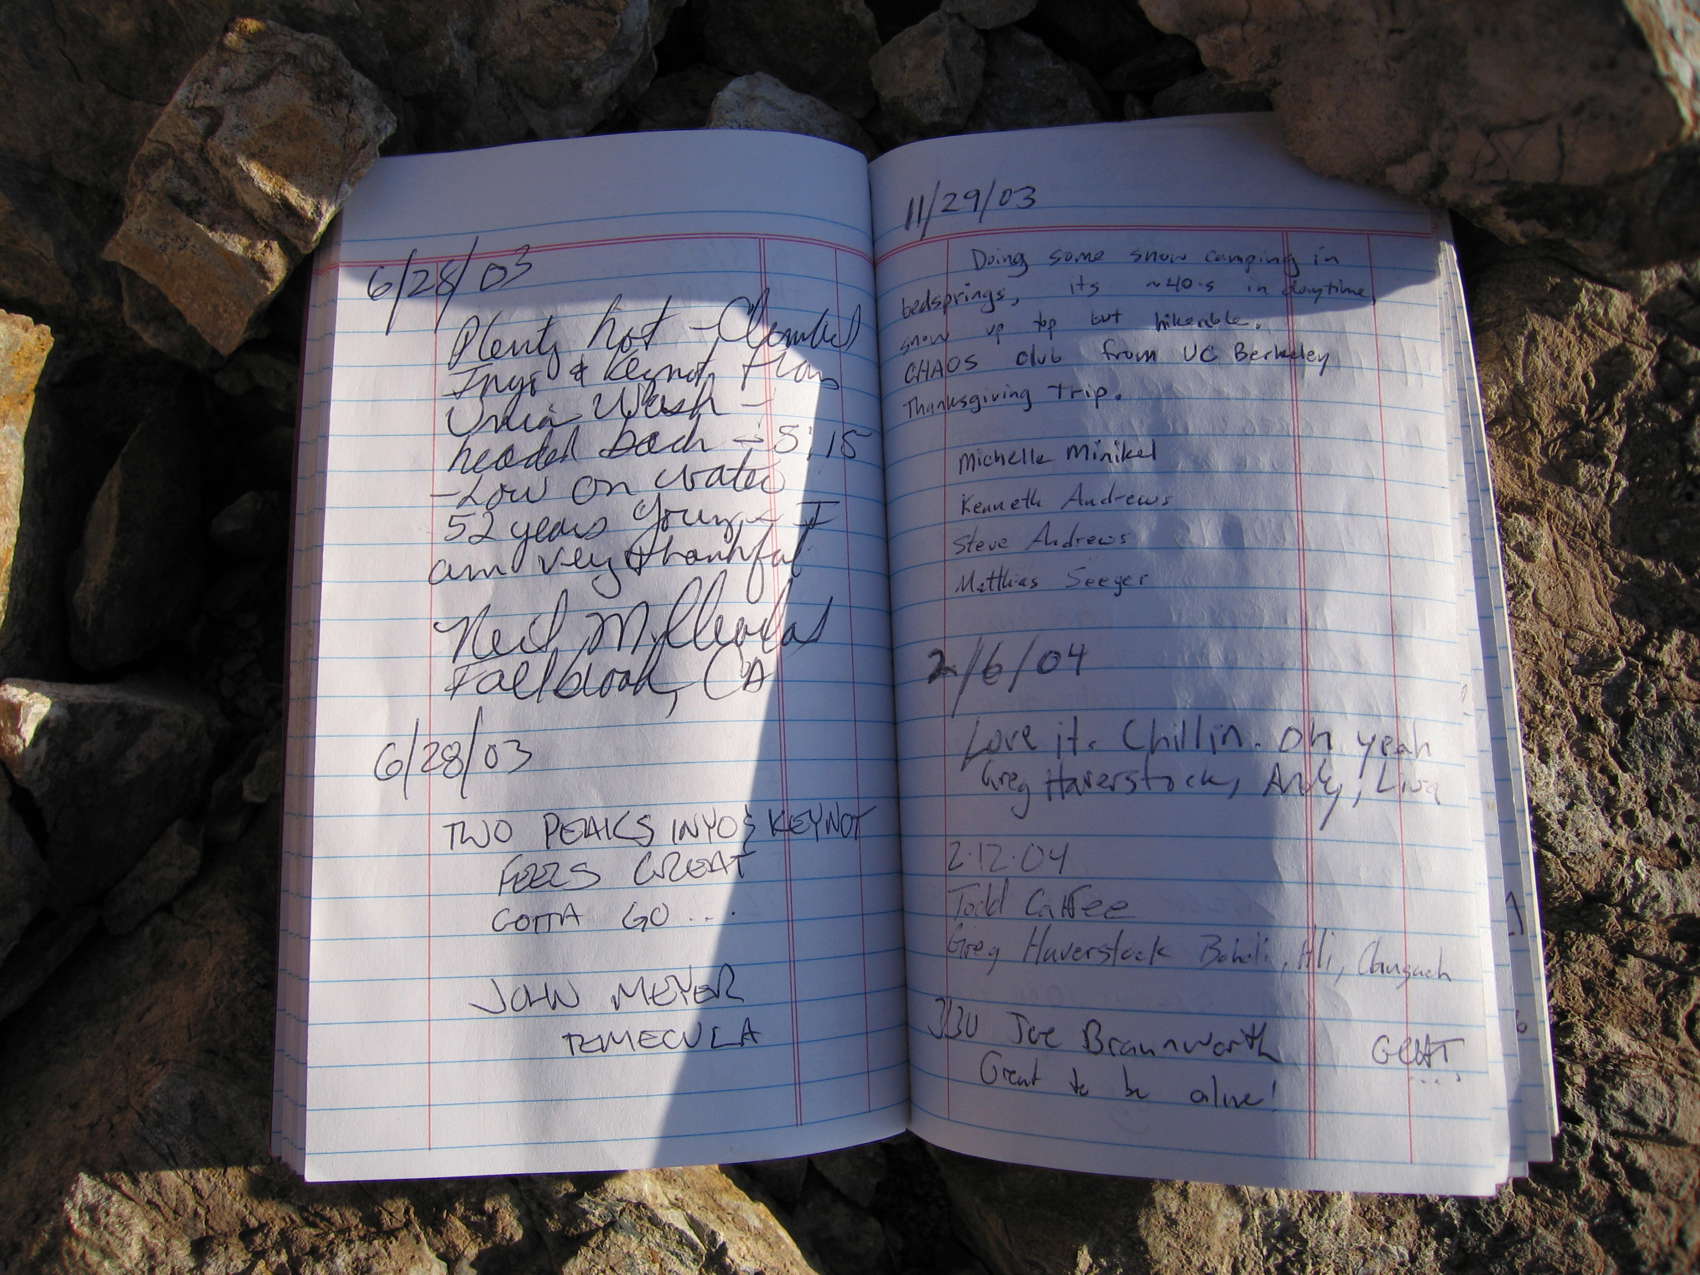 6/28/03
Plenty hot - Climbed
Inyo & Keynot from
Union Wash -
headed back - 5:15
- Low on water
52 years young - I
am very thankful
Neil
Fallbrook, CA
6/28/03
TWO PEAKS INYO & KEYNOT
FEELS GREAT
GOTTA GO ...
JOHN MEYER
TEMECULA
11/29/03
Doing some snow camping in
bedsprings, its ~40's in daytime,
snow up top but hikerable.
CHAOS club from UC Berkeley
Thanksgiving Trip.
Michelle Minikel
Kenneth Andrews
Steve Andrews
Matthias Seeger
2/6/04
Love it. Chillin. oh yeah
Greg Haverstock, Andy, Lisa
2.12.04
Todd Caffee
Greg Haverstock Ali, Chugach
3/30 Joe Braunworth
Great to be alive!